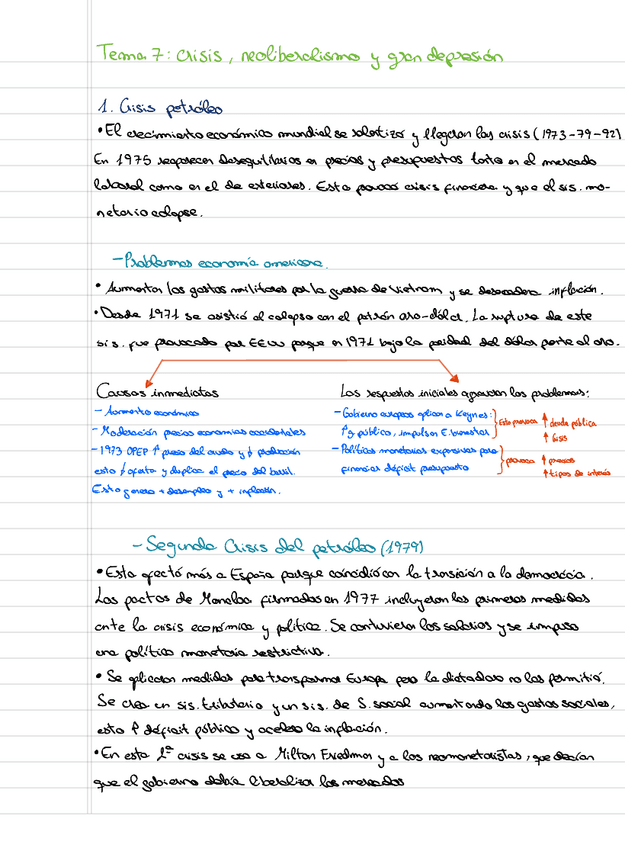 Tema 7: Crisis, neoliberalismo y gran depresión
1. Crisis petróleo
• El crecimiento económico mundial se ralentiza y llegaron las crisis (1973-79-92)
En 1975 reaparecen desequilibrios en precios y presupuestos tanto en el mercado
laboral como en el de exteriores. Esto provocó crisis financiera y que el sis. mo-
netario colapse.
- Problemas economía americana.
• Aumentan los gastos militares por la guerra de Vietnam y se desencadena inflación.
• Desde 1971 se asistió al colapso con el patrón oro-dólar. La ruptura de este
sis. fue provocado por EEUU porque en 1971 bajó la paridad del dólar frente al oro.
Causas inmediatas
- Aumento económico
- Moderación precios economías occidentales
- 1973 OPEP ↑ precio del crudo y ↓ producción
esto ↓ oferta y duplica el precio del barril.
Esto genera + desempleo y + inflación.
Las respuestas iniciales agravaron los problemas:
- Gobierno europeos aplican a Keynes:
↑g. público, impulsan E. bienestar
Esto provoca ↑ deuda pública
↑ Crisis
- Políticas monetarias expansivas para
financiar déficit presupuesto
provoca ↑ precios
↑ tipos de interés
- Segunda Crisis del petróleo (1979)
• Esta afectó más a España porque coincidió con la transición a la democracia.
Los pactos de Moncloa firmados en 1977 incluyeron las primeras medidas
ante la crisis económica y política. Se contuvieron los salarios y se impuso
una política monetaria restrictiva.
• Se aplicaron medidas para transformar Europa pero la dictadura no las permitió.
Se crea un sis. tributario y un sis. de S. social aumentando los gastos sociales,
esto ↑ déficit público y acelera la inflación.
• En esta 2ª crisis se usa a Milton Friedman y a los neomonetaristas, que decían
que el gobierno debía liberalizar los mercados